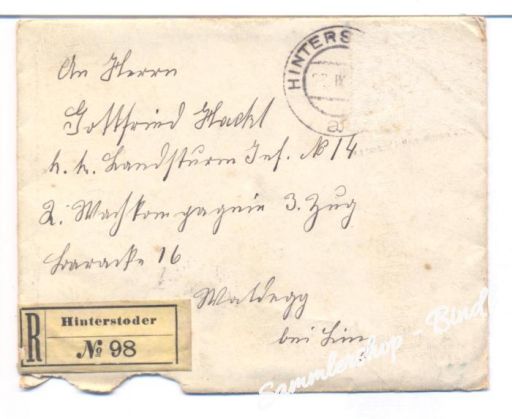 HINTERS
a
An Herrn
Gottfried Hackl
k. k. Landsturm Inf. № 14
2. Wachkompagnie 3. Zug
Baracke 16
Waldegg
bei Linz
R Hinterstoder
№ 98
Sammlershop - Bindl